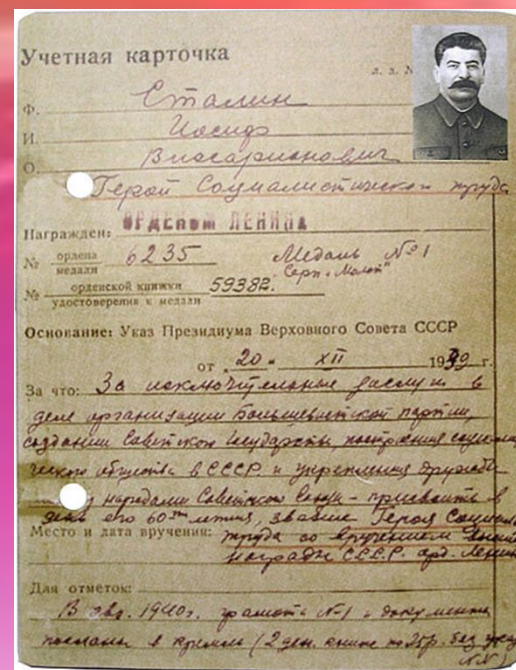 Учетная карточка
л. д. №
Ф. Сталин
И. Иосиф
О. Виссарионович
Герой Социалистического труда
Награжден: ОРДЕНОМ ЛЕНИНА
№ ордена медали 6235 Медаль №1
"Серп и Молот"
№ орденской книжки удостоверения к медали 59382.
Основание: Указ Президиума Верховного Совета СССР
от "20" XII 1939 г.
За что: За исключительные заслуги в
деле организации Большевистской партии,
создании Советского Государства, построения социали-
ческого общества в СССР и укрепления дружбы
народами Советского Союза - присвоить в
день его 60ти летия, звание Героя Социали
Место и дата вручения: труда со вручением высшей
награды СССР орд. Ленина
Для отметок:
В 1940г. грамота №1 и документы
посланы в кремль (2 ден. книжки по 25р. без